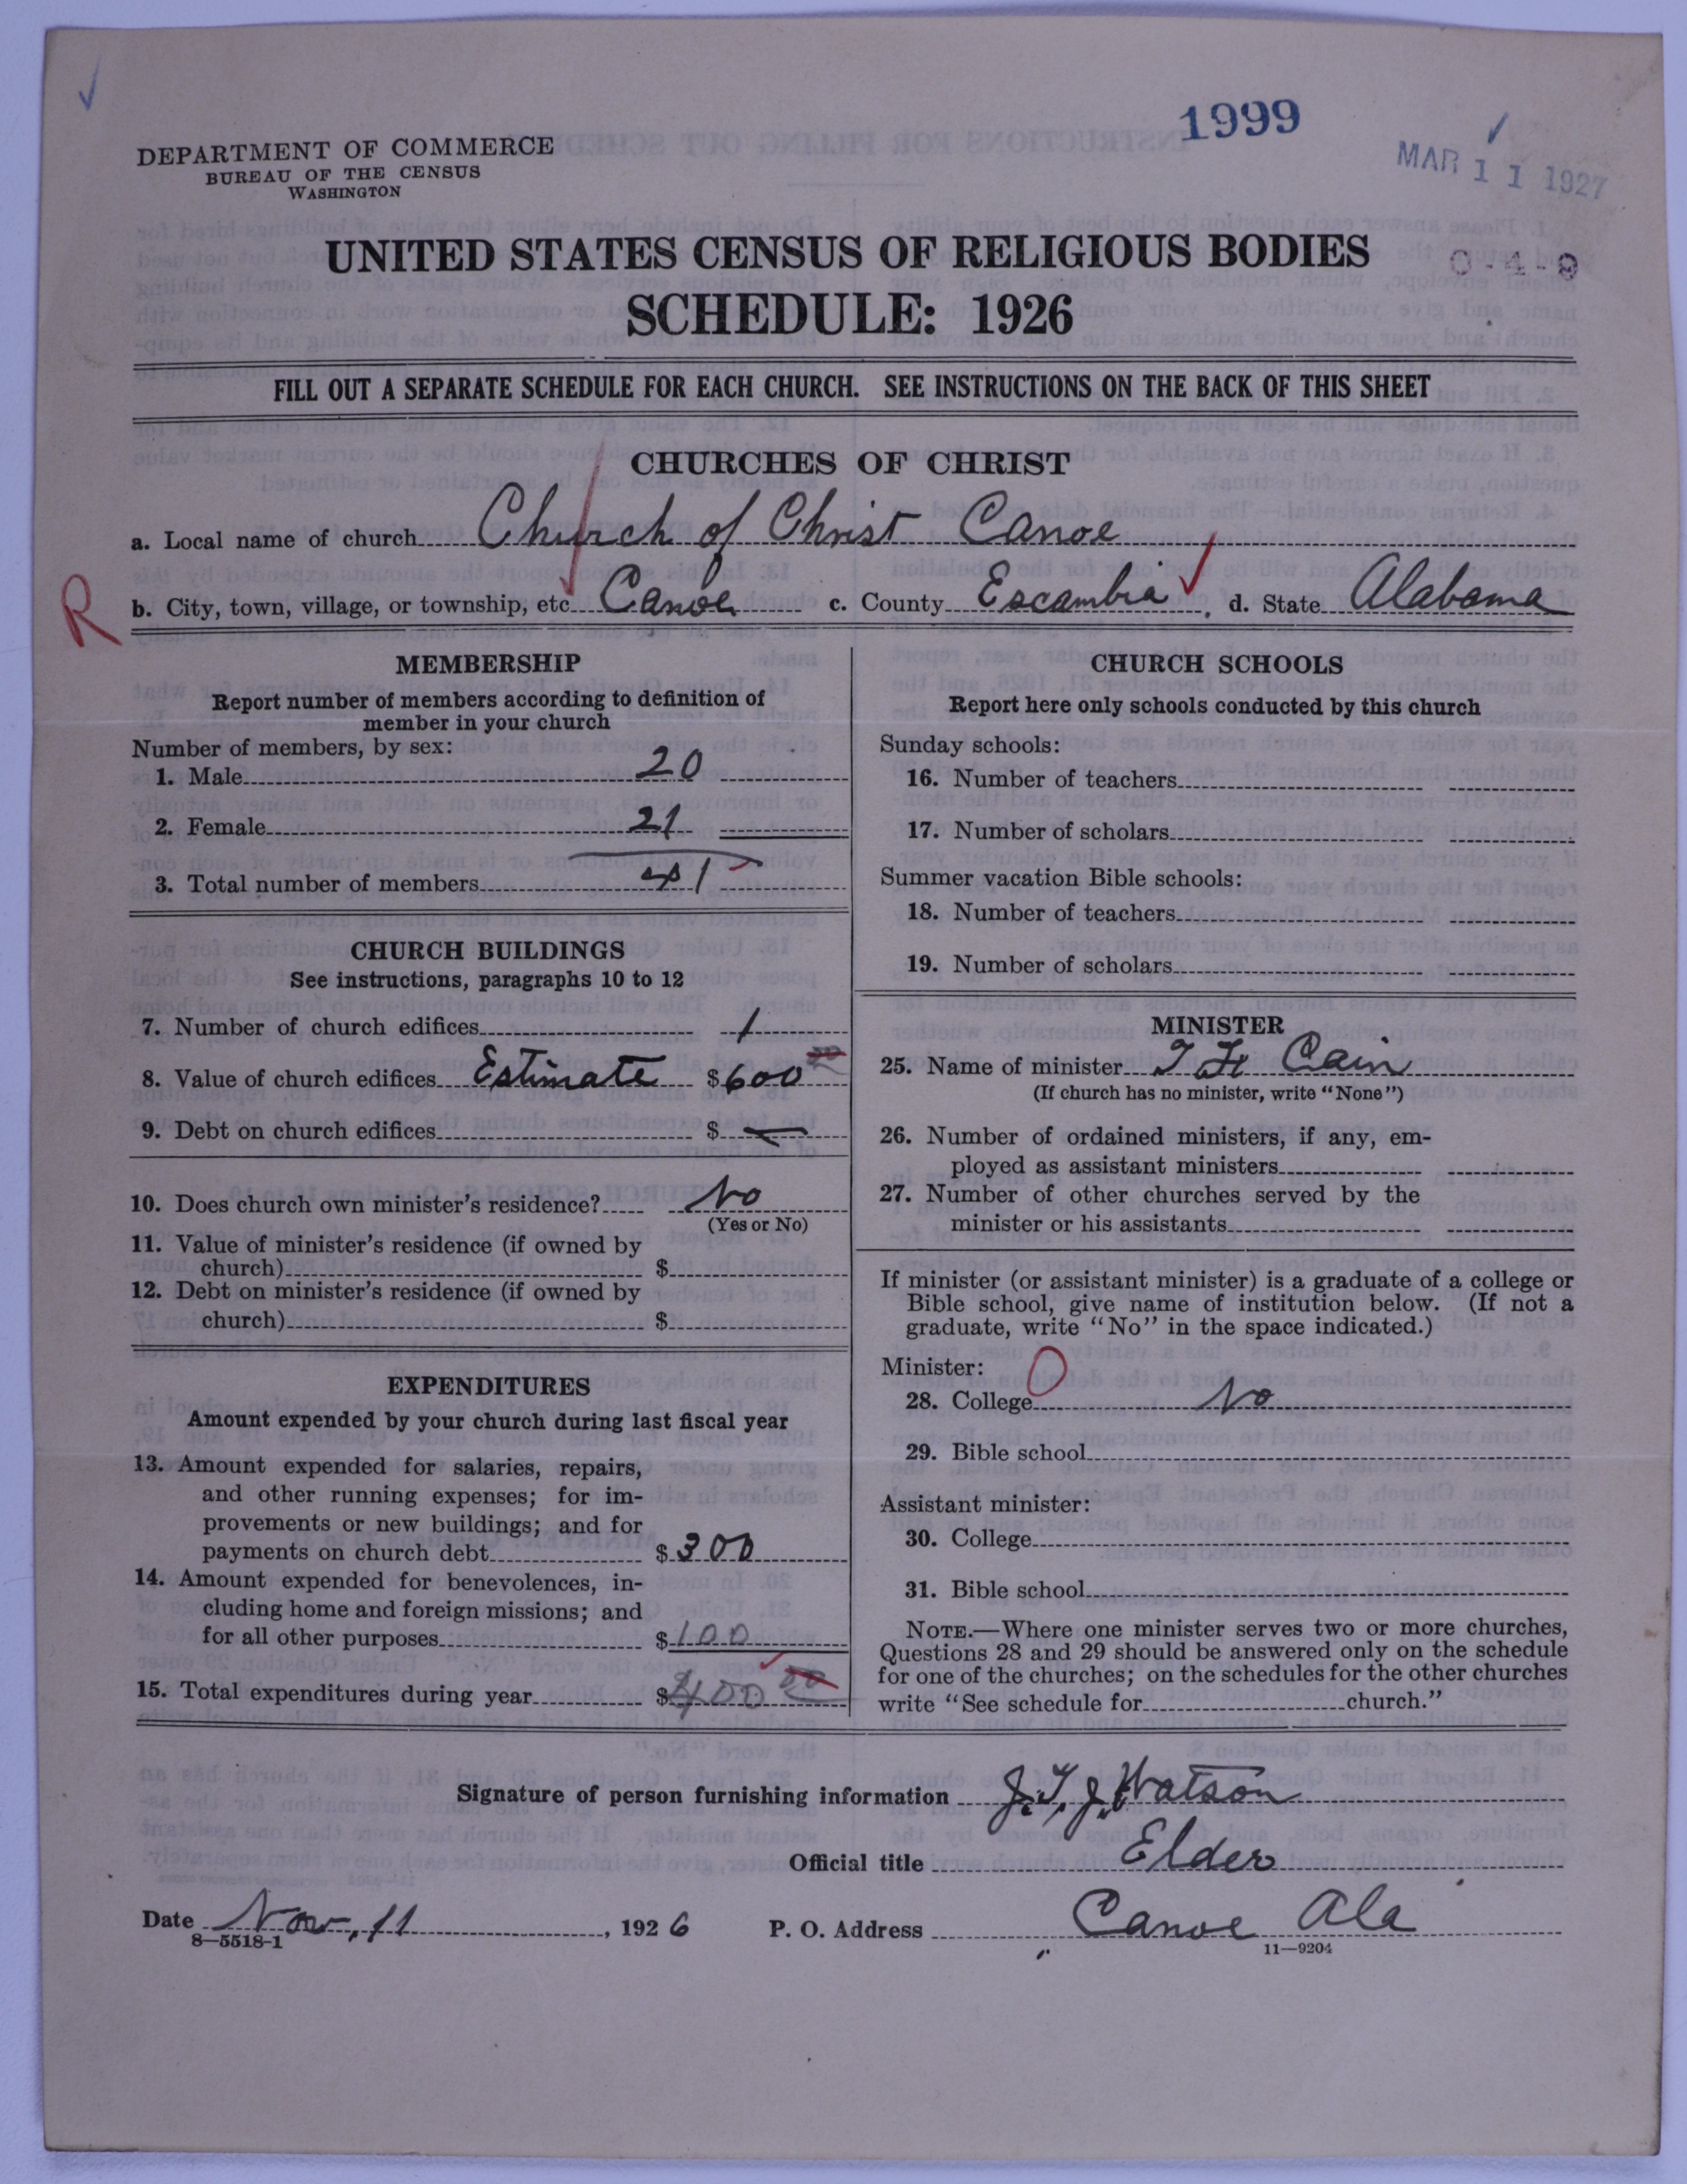 1999
MAR 11 1927
DEPARTMENT OF COMMERCE
BUREAU OF THE CENSUS
WASHINGTON
UNITED STATES CENSUS OF RELIGIOUS BODIES
0-4-9
SCHEDULE: 1926
FILL OUT A SEPARATE SCHEDULE FOR EACH CHURCH. SEE INSTRUCTIONS ON THE BACK OF THIS SHEET
CHURCHES OF CHRIST
a. Local name of church Church of Christ Canoe
R
b. City, town, village, or township, etc. Canoe c. County Escambia d. State Alabama
MEMBERSHIP
Report number of members according to definition of
member in your church
Number of members, by sex:
1. Male 20
2. Female 21
3. Total number of members 41
CHURCH BUILDINGS
See instructions, paragraphs 10 to 12
7. Number of church edifices 1
8. Value of church edifices Estimate $600 00
9. Debt on church edifices $ —
10. Does church own minister's residence? No
(Yes or No)
11. Value of minister's residence (if owned by
church) $
12. Debt on minister's residence (if owned by
church) $
EXPENDITURES
Amount expended by your church during last fiscal year
13. Amount expended for salaries, repairs,
and other running expenses; for im-
provements or new buildings; and for
payments on church debt $300
14. Amount expended for benevolences, in-
cluding home and foreign missions; and
for all other purposes $100
15. Total expenditures during year $400 00
CHURCH SCHOOLS
Report here only schools conducted by this church
Sunday schools:
16. Number of teachers
17. Number of scholars
Summer vacation Bible schools:
18. Number of teachers
19. Number of scholars
MINISTER
25. Name of minister Cain
(If church has no minister, write "None")
26. Number of ordained ministers, if any, em-
ployed as assistant ministers
27. Number of other churches served by the
minister or his assistants
If minister (or assistant minister) is a graduate of a college or
Bible school, give name of institution below. (If not a
graduate, write "No" in the space indicated.)
Minister: 0
28. College No
29. Bible school
Assistant minister:
30. College
31. Bible school
NOTE.—Where one minister serves two or more churches,
Questions 28 and 29 should be answered only on the schedule
for one of the churches; on the schedules for the other churches
write "See schedule for church."
Signature of person furnishing information J. T. J. Watson
Official title Elder
Date Nov, 11, 1926 P. O. Address Canoe Ala
8—5518-1
11—9204